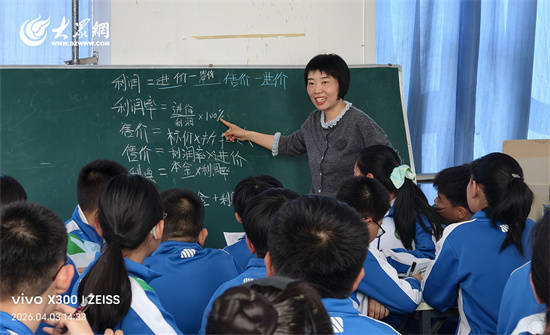 大众網
www.dzwww.com
利润 = 进价 - 售价 售价 - 进价
利润率 = 进价/利润 × 100%
售价 = 标价 × 折
售价 = 利润率 × 进价
利息 = 本金 × 利润率
金 + 利
vivo X300 | ZEISS
2026.04.03 14:13